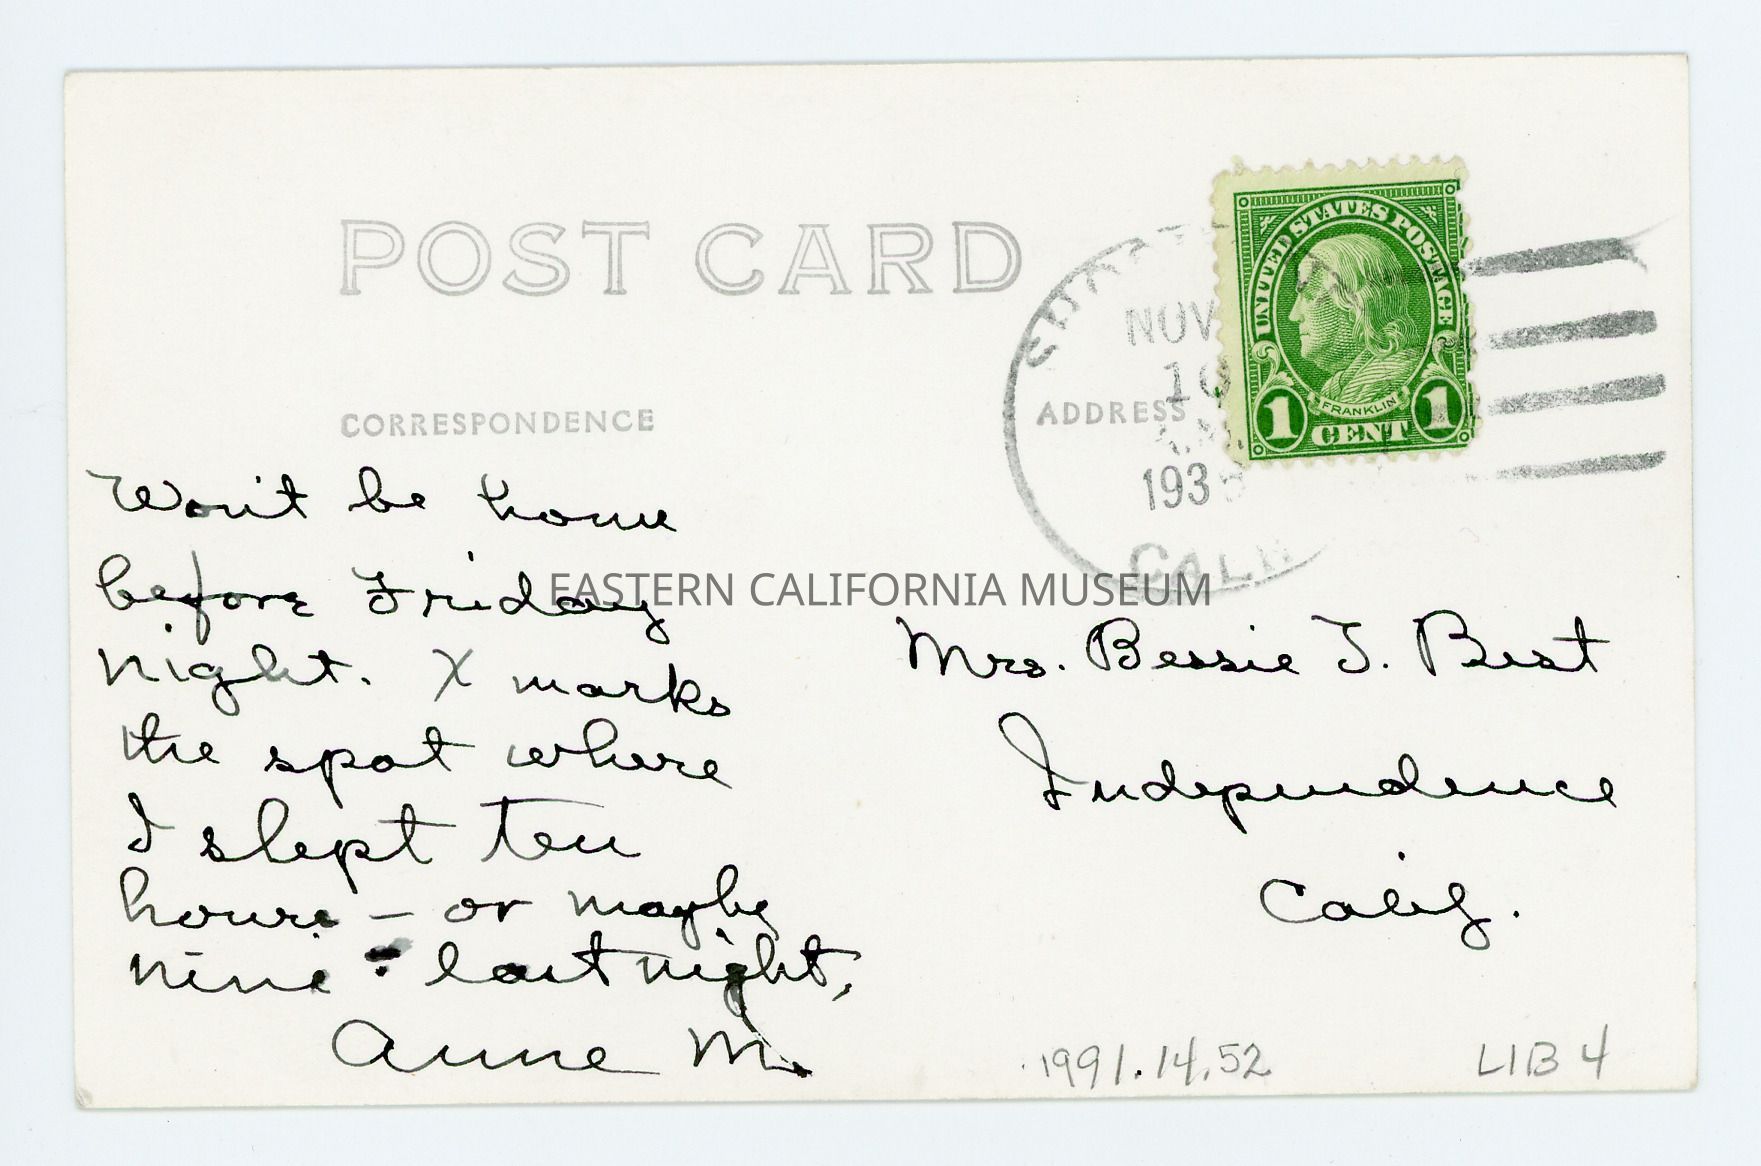 POST CARD
CORRESPONDENCE
ADDRESS
UNITED STATES POSTAGE
FRANKLIN
1 CENT 1
NOV
10
193
CALIF
Won't be home
before Friday
night. X marks
the spot where
I slept ten
hours – or maybe
nine – last night,
Anne M.
EASTERN CALIFORNIA MUSEUM
Mrs. Bessie T. Best
Independence
Calif.
1991.14.52
LIB 4